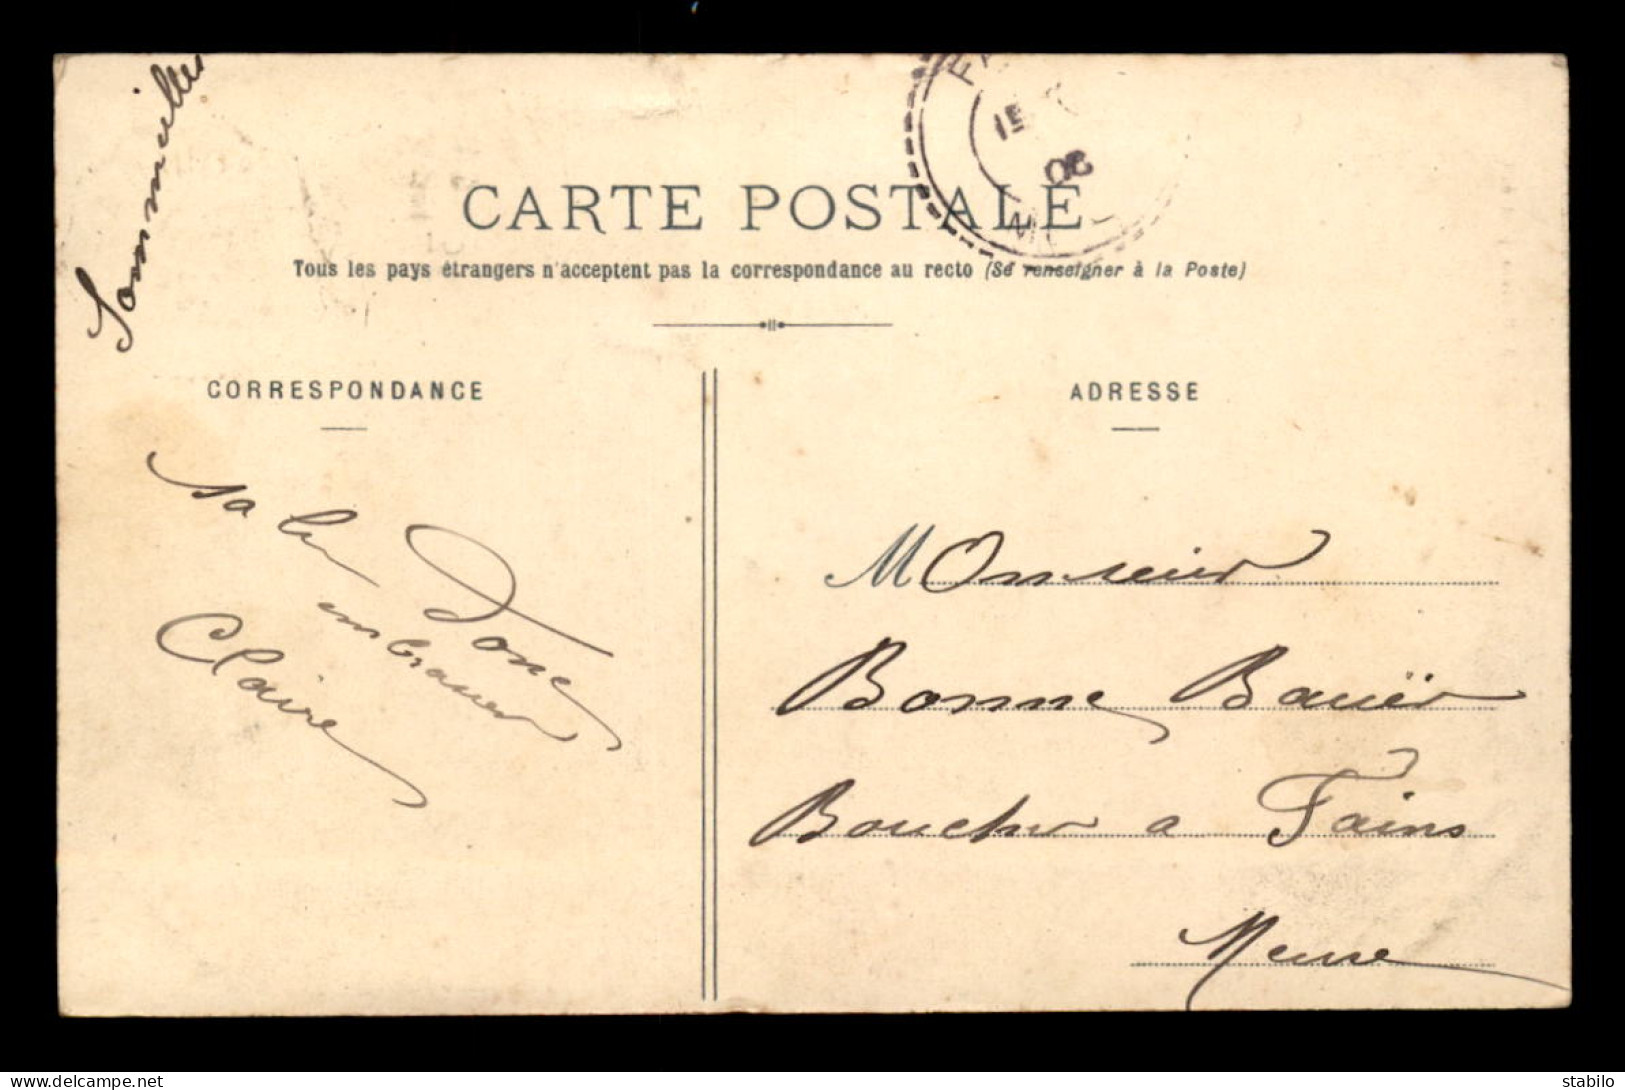 Sommeilles
FA
15
08
M
CARTE POSTALE
Tous les pays étrangers n'acceptent pas la correspondance au recto (Se renseigner à la Poste)
CORRESPONDANCE
ADRESSE
Monsieur
Bonne Bauër
Boucher a Fains
Meuse
Donc
sa
embrasser
Claire
delcampe.net
stabilo